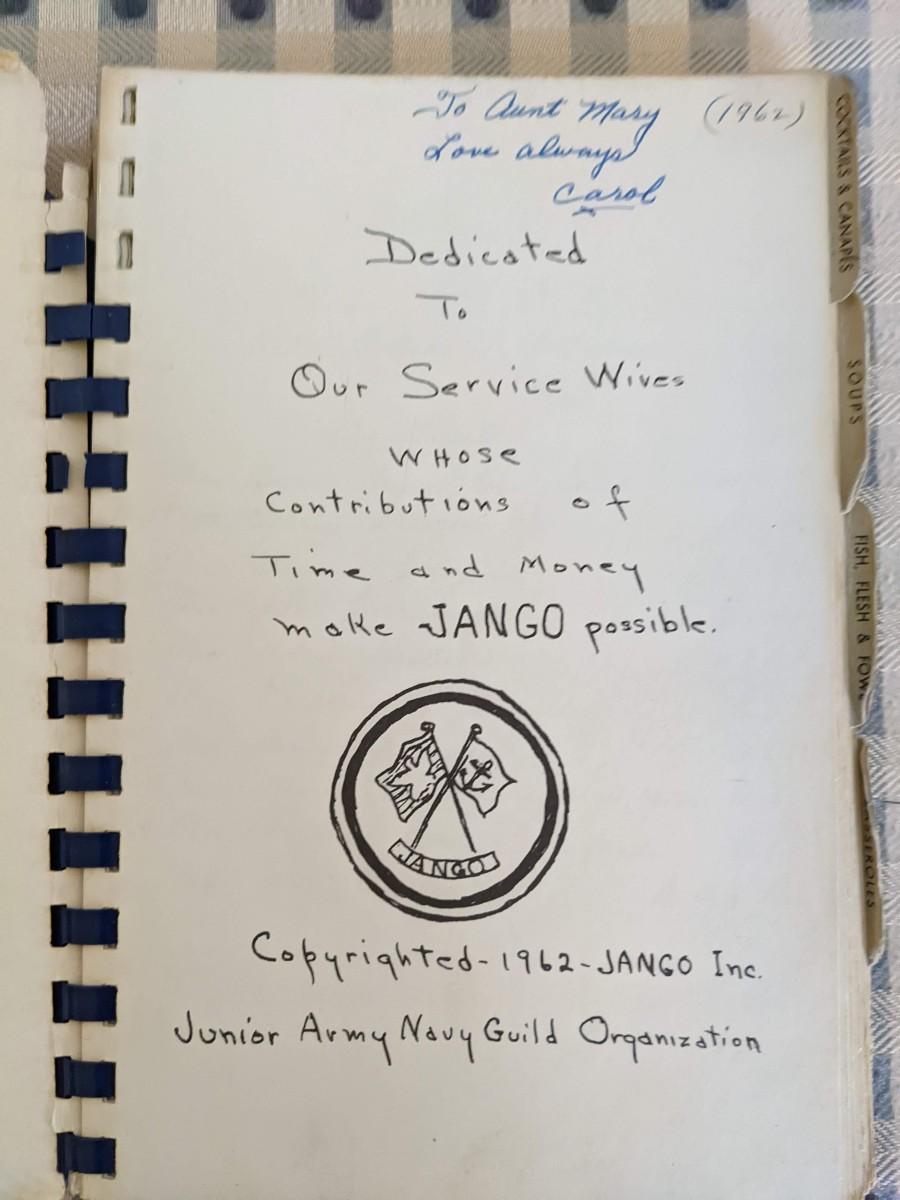 To Aunt Mary (1962)
Love always
Carol
Dedicated
To
Our Service Wives
WHOSE
Contributions of
Time and Money
make JANGO possible.
JANGO
Copyrighted-1962-JANGO Inc.
Junior Army Navy Guild Organization
COCKTAILS & CANAPÉS
SOUPS
FISH, FLESH & FOWL